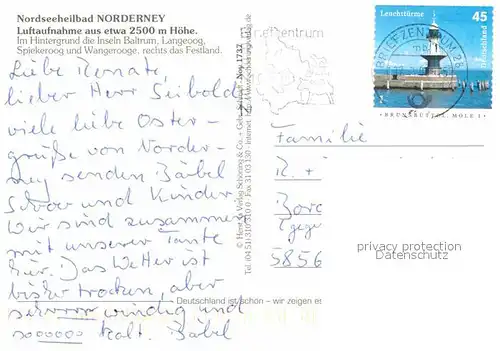 Nordseeheilbad NORDERNEY
Luftaufnahme aus etwa 2500 m Höhe.
Im Hintergrund die Inseln Baltrum, Langeoog,
Spiekeroog und Wangerooge. rechts das Festland.
Liebe Renate,
lieber Herr Seibold
viele liebe Oster-
grüße von Norder-
ney senden Bärbel
und Kinder.
Wir sind zusammen
mit unserer Tante
hier. Das Wetter ist
bisher trocken, aber
windig und
sooooooo kalt. Bärbel
Deutschland ist schön – wir zeigen es
Briefzentrum
Leuchttürme
45
Deutschland
BRIEFZENTRUM
BRUNSBÜTTEL, MOLE 1
Familie
R. +
5856
privacy protection
Datenschutz